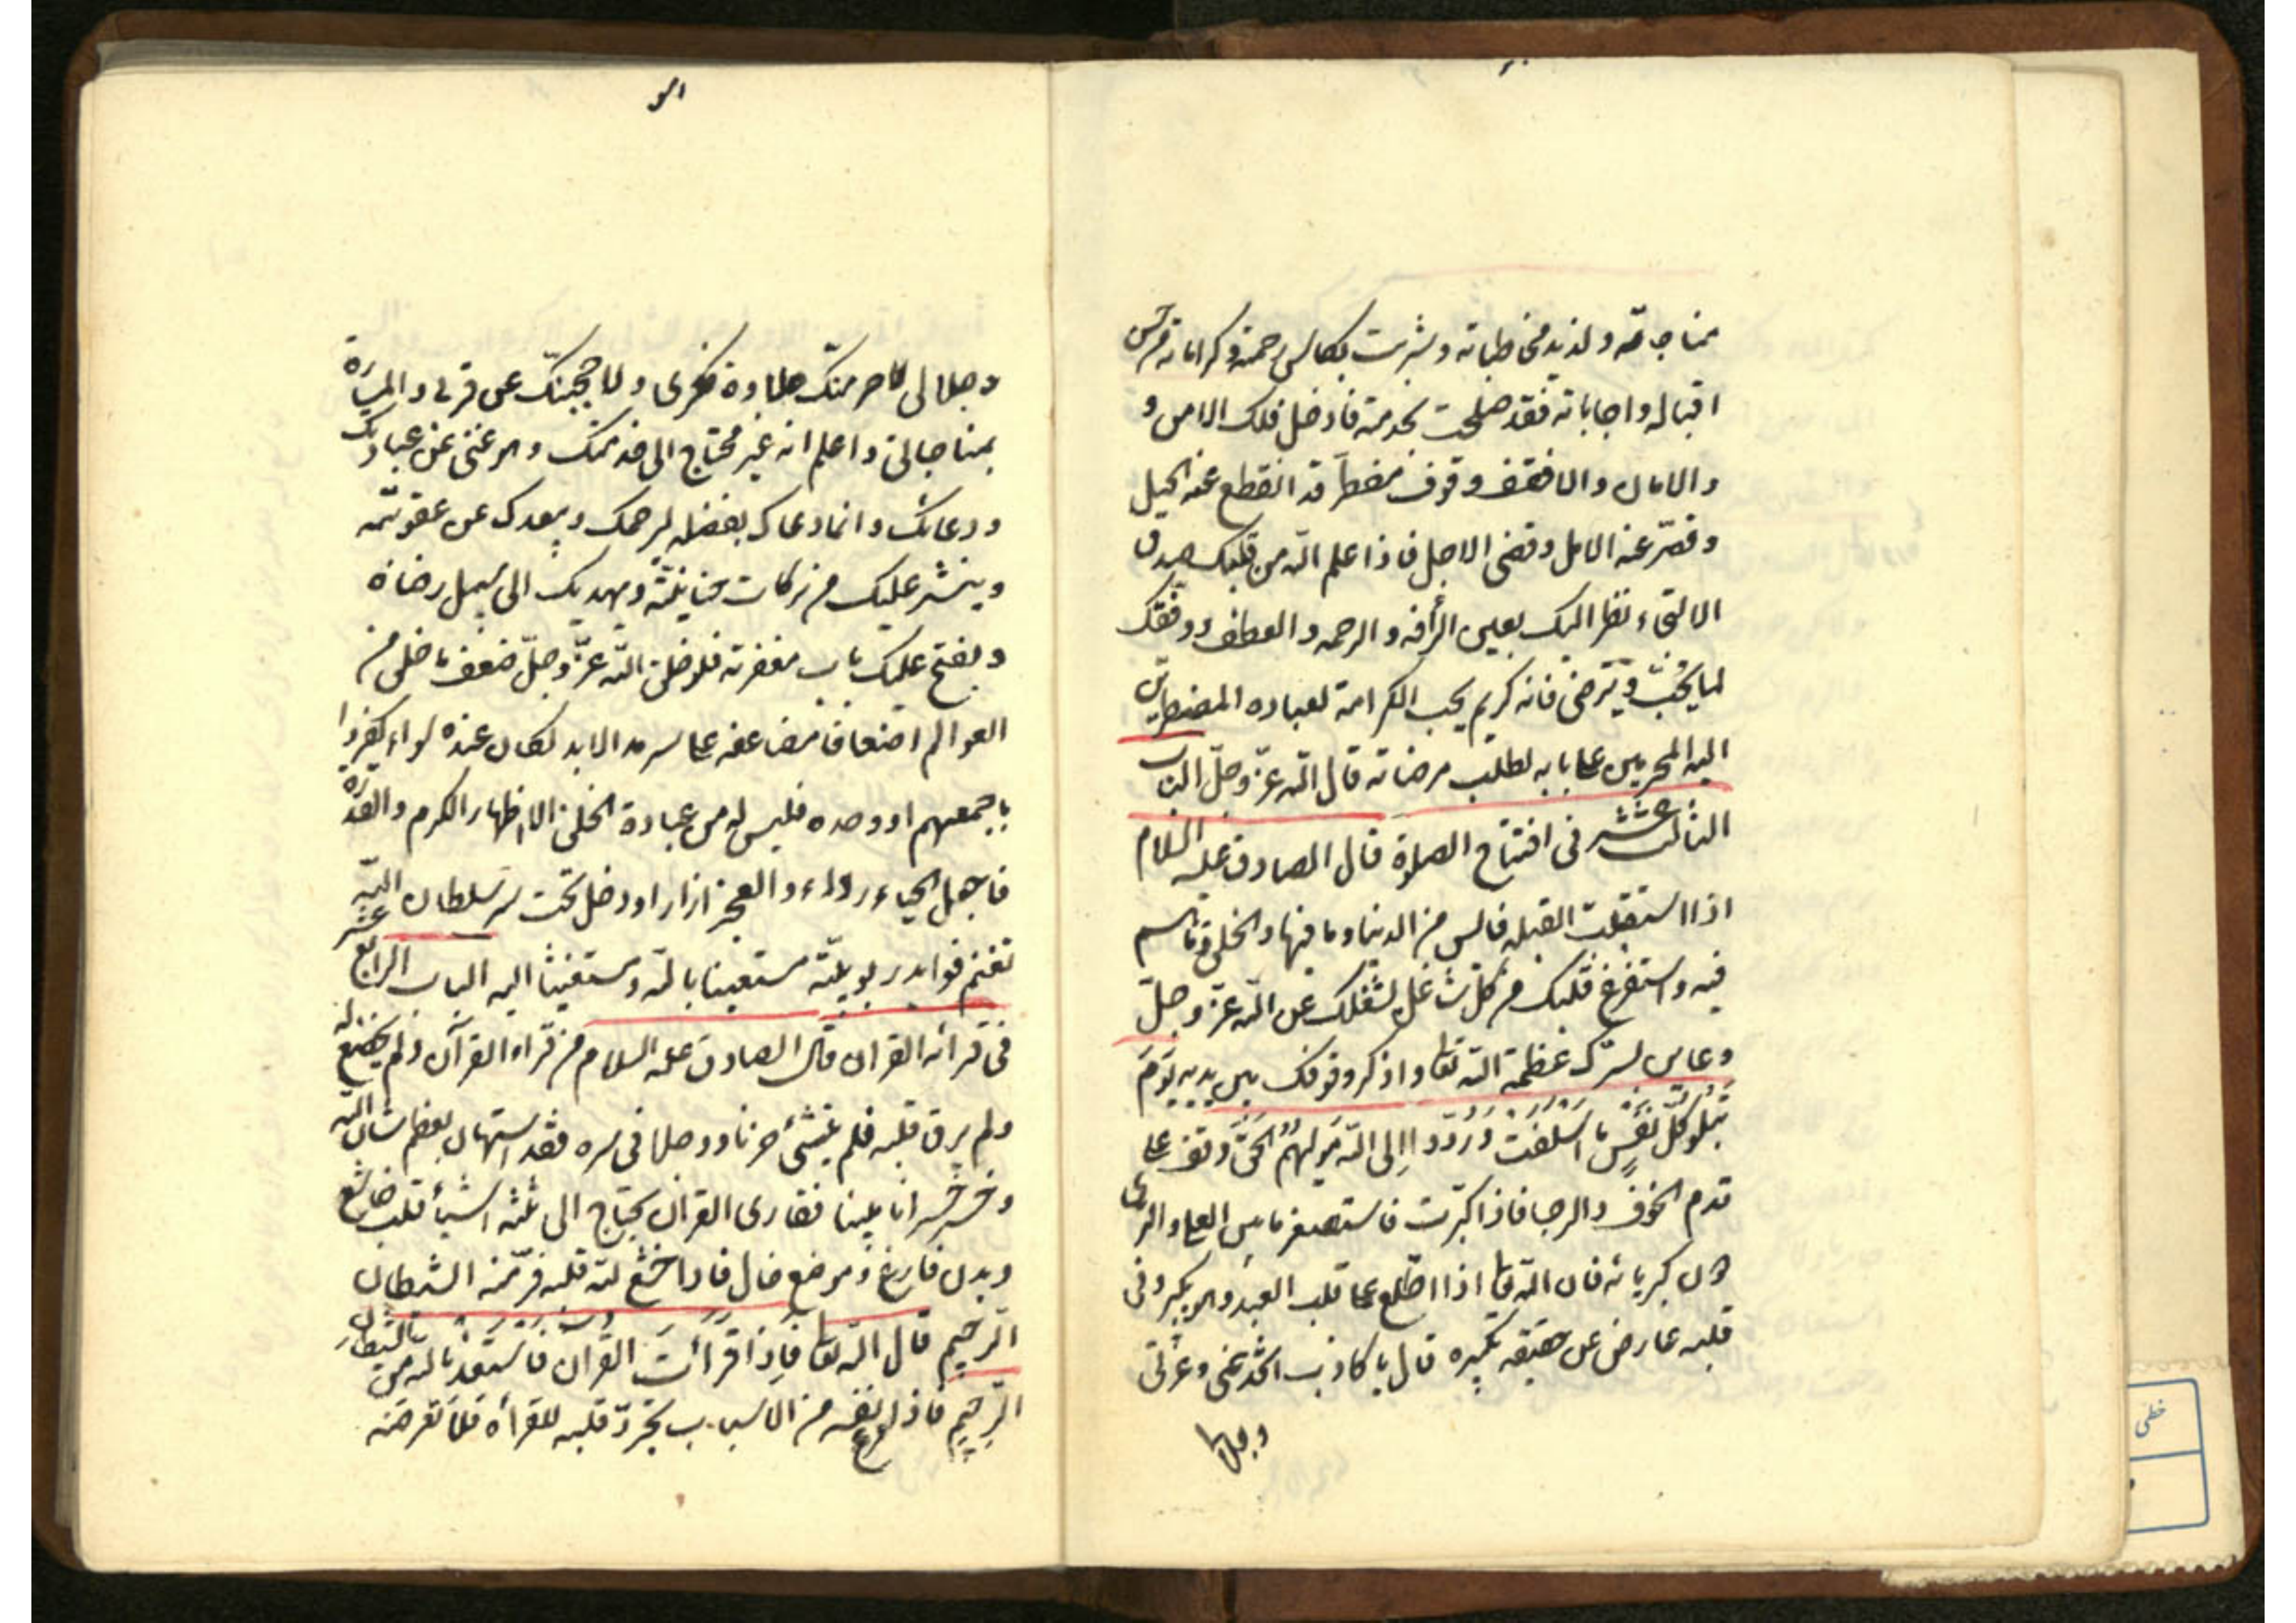 مناجاته ولذيذ مخاطباته وشربت بكاس رحمته وكراماته من حسن
اقباله واجاباته فقد صلحت لخدمته فادخل فلك الامن و
والامان والا فقف وقوف مضطر قد انقطع عنه الحيل
وقصر عنه الامل وقضى الاجل فاذا علم الله من قلبك صدق
الالتجاء نظر اليك بعين الرأفه والرحمه والعطف ووفقك
لما يحب ويرضى فانه كريم يحب الكرامة لعباده المضطرين
اليه المحرمين على بابه لطلب مرضاته قال الله عزّ وجلّ الباب
الثالث عشر فى افتتاح الصلوة قال الصادق عليه السلام
اذا استقبلت القبله فايس من الدنيا وما فيها والخلق وما هم
فيه واستفرغ قلبك من كل شاغل يشغلك عن الله عزّ وجلّ
وعاين بسرك عظمة الله تعا واذكر وقوفك بين يديه يَوْمَ
تَبْلُو كُلُّ نَفْسٍ ما اَسْلَفَتْ وَرُدّوا اِلى اللهِ مَوْلٰهُمُ الحَقِّ وقف على
قدم الخوف والرجا فاذا كبّرت فاستصغر ما بين العلى والثرى
دون كبريائه فان الله تعا اذا اطّلع على قلب العبد وهو يكبر وفى
قلبه عارض عن حقيقه تكبيره قال يا كاذب اتخدعنى وعزّتى
وجلالى
وجلالى لاحرمنّك حلاوة ذكرى ولاحجبنّك عن قربى والمسارّة
بمناجاتى واعلم انه غير محتاج الى خدمتك وهو غنى عن عبادتك
ودعائك وانما دعاك بفضله ليرحمك ويبعدك عن عقوبته
وينشر عليك من بركات حنانيته ويهديك الى سبيل رضاه
ويفتح عليك باب مغفرته فلو خلق الله عزّ وجلّ ضعف ما خلق من
العوالم اضعافا مضاعفه على سرمد الابد لكان عنده سواء يكفروا
باجمعهم او وحده فليس له من عبادة الخلق الا اظهار الكرم والقدرة
فاجعل الحياء رداء والعجز ازارا وادخل تحت سر سلطان الله
تغنم فوايد ربوبيّته مستعينا بالله ومستغيثا اليه الباب الرابع عشر
فى قرائه القران قال الصادق عليه السلام من قراء القرآن ولم يخضع له
ولم يرق قلبه فلم ينشئ حزنا ووجلا فى سره فقد استهان بعظم شان الله
وخسر خسرانا مبينا فقارى القران يحتاج الى ثلثه اشيأ قلب خاشع
وبدن فارغ وموضع خال فاذا خشع لله قلبه فرّ منه الشيطان
الرجيم قال الله تعا فَاِذا قَرَأتَ القُرْانَ فَاسْتَعِذْ بالله من الشيطان
الرّجيم فاذا تفرغ نفسه من الاسباب تجرّد قلبه للقرأه فلا تعرضه